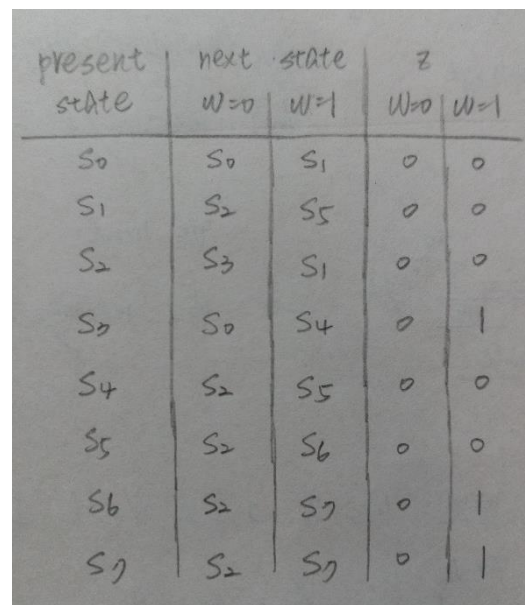 present next state z
state w=0 w=1 w=0 w=1
S0 S0 S1 0 0
S1 S2 S5 0 0
S2 S3 S1 0 0
S3 S0 S4 0 1
S4 S2 S5 0 0
S5 S2 S6 0 0
S6 S2 S7 0 1
S7 S2 S7 0 1